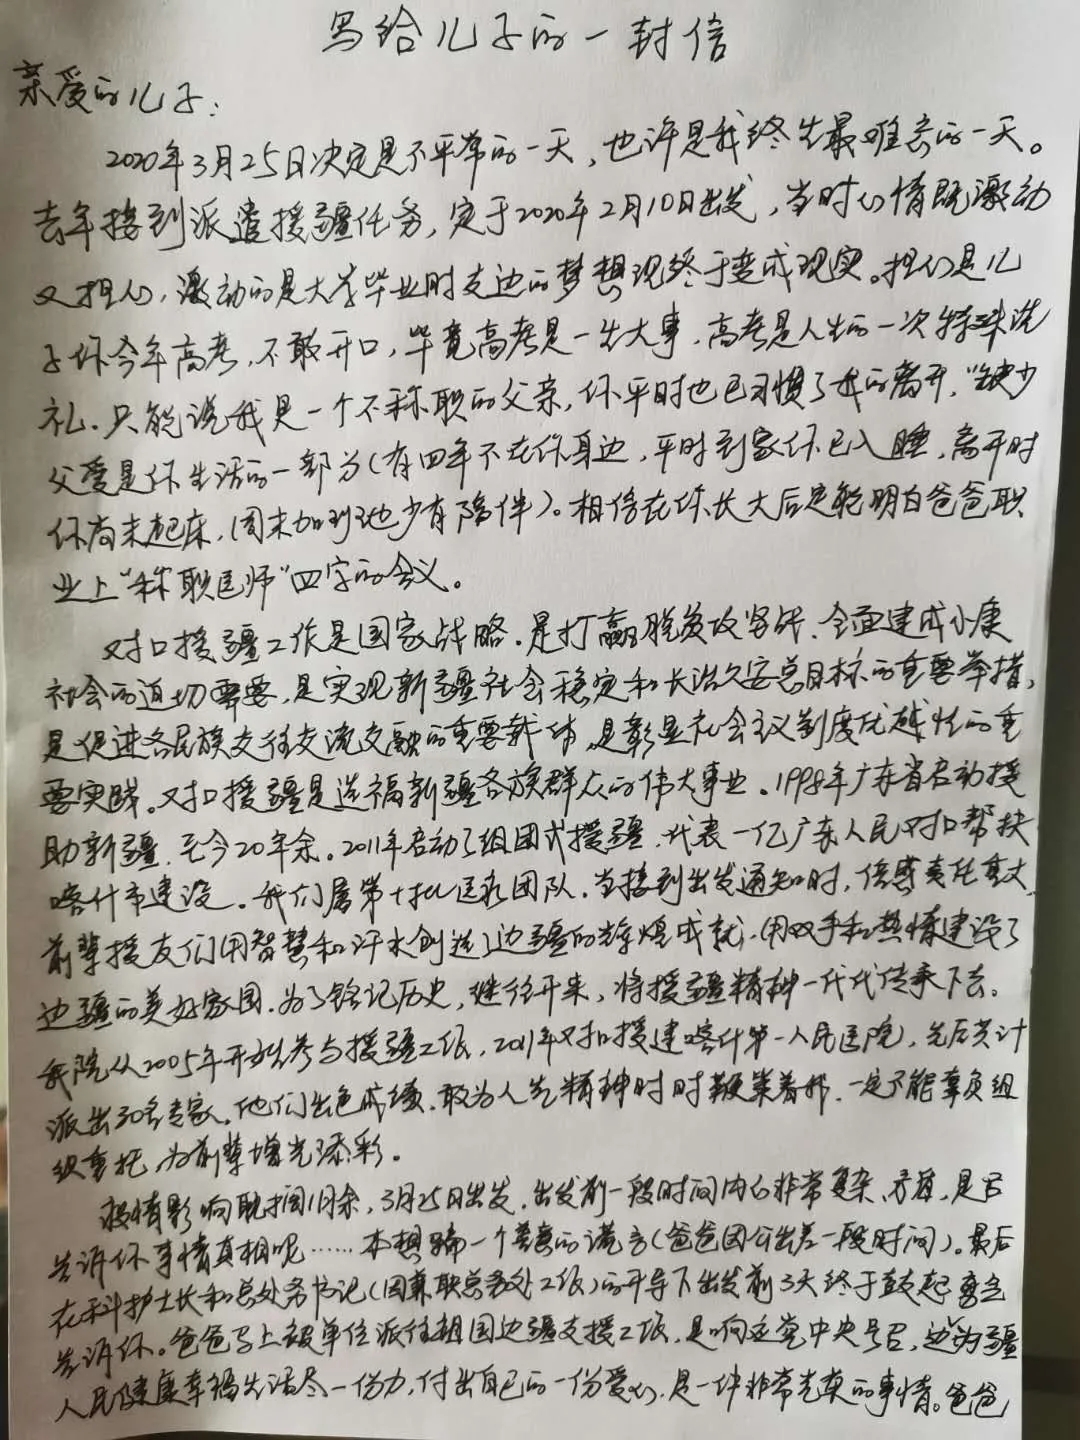 写给儿子的一封信
亲爱的儿子：
2020年3月25日决定是不平常的一天，也许是我终生最难忘的一天。
去年接到派遣援疆任务，定于2020年2月10日出发，当时心情既激动
又担心，激动的是大学毕业时支边的梦想现终于变成现实。担心是儿
子你今年高考，不敢开口，毕竟高考是一生大事，高考是人生的一次特殊洗
礼．只能说我是一个不称职的父亲，你平时也已习惯了我的离开，"缺少
父爱是你生活的一部分（有四年不在你身边，平时到家你已入睡，离开时
你尚未起床，（周末加班也少有陪伴）。相信在你长大后定能明白爸爸职
业上"称职医师"四字的含义。
对口援疆工作是国家战略．是打赢脱贫攻坚战、全面建成小康
社会的迫切需要，是实现新疆社会稳定和长治久安总目标的重要举措，
是促进各民族交往交流交融的重要载体，是彰显社会主义制度优越性的重
要实践。对口援疆是造福新疆各族群众的伟大事业．1998年广东省启动援
助新疆，至今20年余。2011年启动了组团式援疆，代表一亿广东人民对口帮扶
喀什市建设。我们属第十批医疗团队．当接到出发通知时，倍感责任重大，
前辈援友们用智慧和汗水创造了边疆的辉煌成就，用双手和热情建设了
边疆的美好家园．为了铭记历史，继往开来，将援疆精神一代代传承下去．
我院从2005年开始参与援疆工作，2011年对口援建喀什第一人民医院，先后共计
派出30名专家．他们出色成绩，敢为人先精神时时鞭策着我．一定不能辜负组
织重托，为前辈增光添彩。
疫情影响耽搁1月余，3月25日出发．出发前一段时间内心非常复杂、矛盾，是否
告诉你事情真相呢……本想编一个善意的谎言（爸爸因公出差一段时间）。最后
在科护士长和总务书记（因兼职总务处工作）的开导下出发前3天终于鼓起勇气
告诉你。爸爸马上被单位派往祖国边疆支援工作，是响应党中央号召，为边疆
人民健康幸福生活尽一份力，付出自己的一份爱心，是一件非常光荣的事情。爸爸